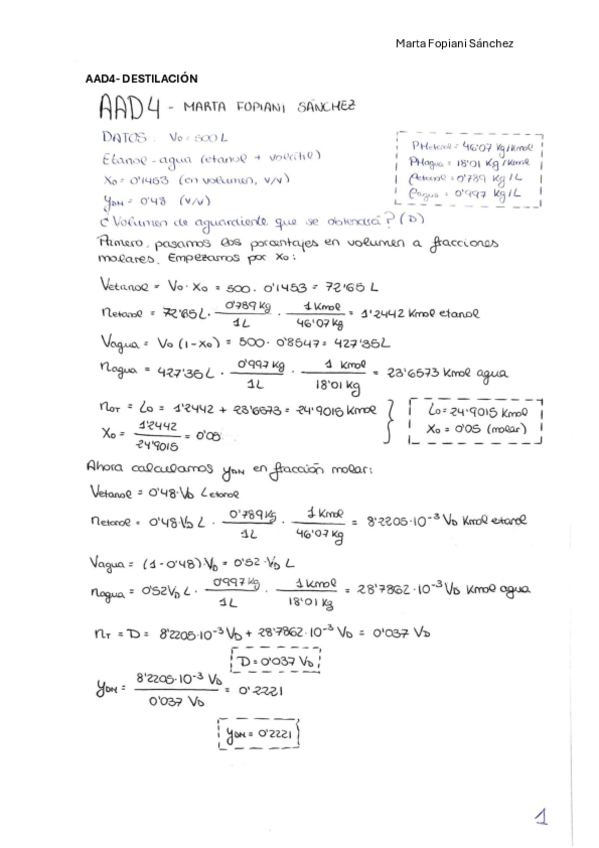 Marta Fopiani Sánchez
AAD4- DESTILACIÓN
AAD4 - MARTA FOPIANI SÁNCHEZ
DATOS: V₀ = 500 L
Etanol - agua (etanol + volátil)
X₀ = 0'1453 (en volumen, v/v)
y_DM = 0'48 (v/v)
¿Volumen de aguardiente que se obtendrá? (D)
PMetanol = 46'07 Kg/Kmol
PMagua = 18'01 Kg/Kmol
ρetanol = 0'789 Kg/L
ρagua = 0'997 Kg/L
Primero, pasamos los porcentajes en volumen a fracciones
molares. Empezamos por X₀:
Vetanol = V₀ · X₀ = 500 · 0'1453 = 72'65 L
netanol = 72'65 L · 0'789 Kg / 1 L · 1 Kmol / 46'07 Kg = 1'2442 Kmol etanol
Vagua = V₀ (1-X₀) = 500 · 0'8547 = 427'35 L
nagua = 427'35 L · 0'997 Kg / 1 L · 1 Kmol / 18'01 Kg = 23'6573 Kmol agua
n₀T = L₀ = 1'2442 + 23'6573 = 24'9015 Kmol
X₀ = 1'2442 / 24'9015 = 0'05
L₀ = 24'9015 Kmol
X₀ = 0'05 (molar)
Ahora calculamos y_DM en fracción molar:
Vetanol = 0'48 · V_D L etanol
netanol = 0'48 · V_D L · 0'789 Kg / 1 L · 1 Kmol / 46'07 Kg = 8'2205·10⁻³ V_D Kmol etanol
Vagua = (1-0'48) · V_D = 0'52 · V_D L
nagua = 0'52 V_D L · 0'997 Kg / 1 L · 1 Kmol / 18'01 Kg = 28'7862·10⁻³ V_D Kmol agua
n_T = D = 8'2205·10⁻³ V_D + 28'7862·10⁻³ V_D = 0'037 V_D
D = 0'037 V_D
y_DM = 8'2205·10⁻³ V_D / 0'037 V_D = 0'2221
y_DM = 0'2221
1